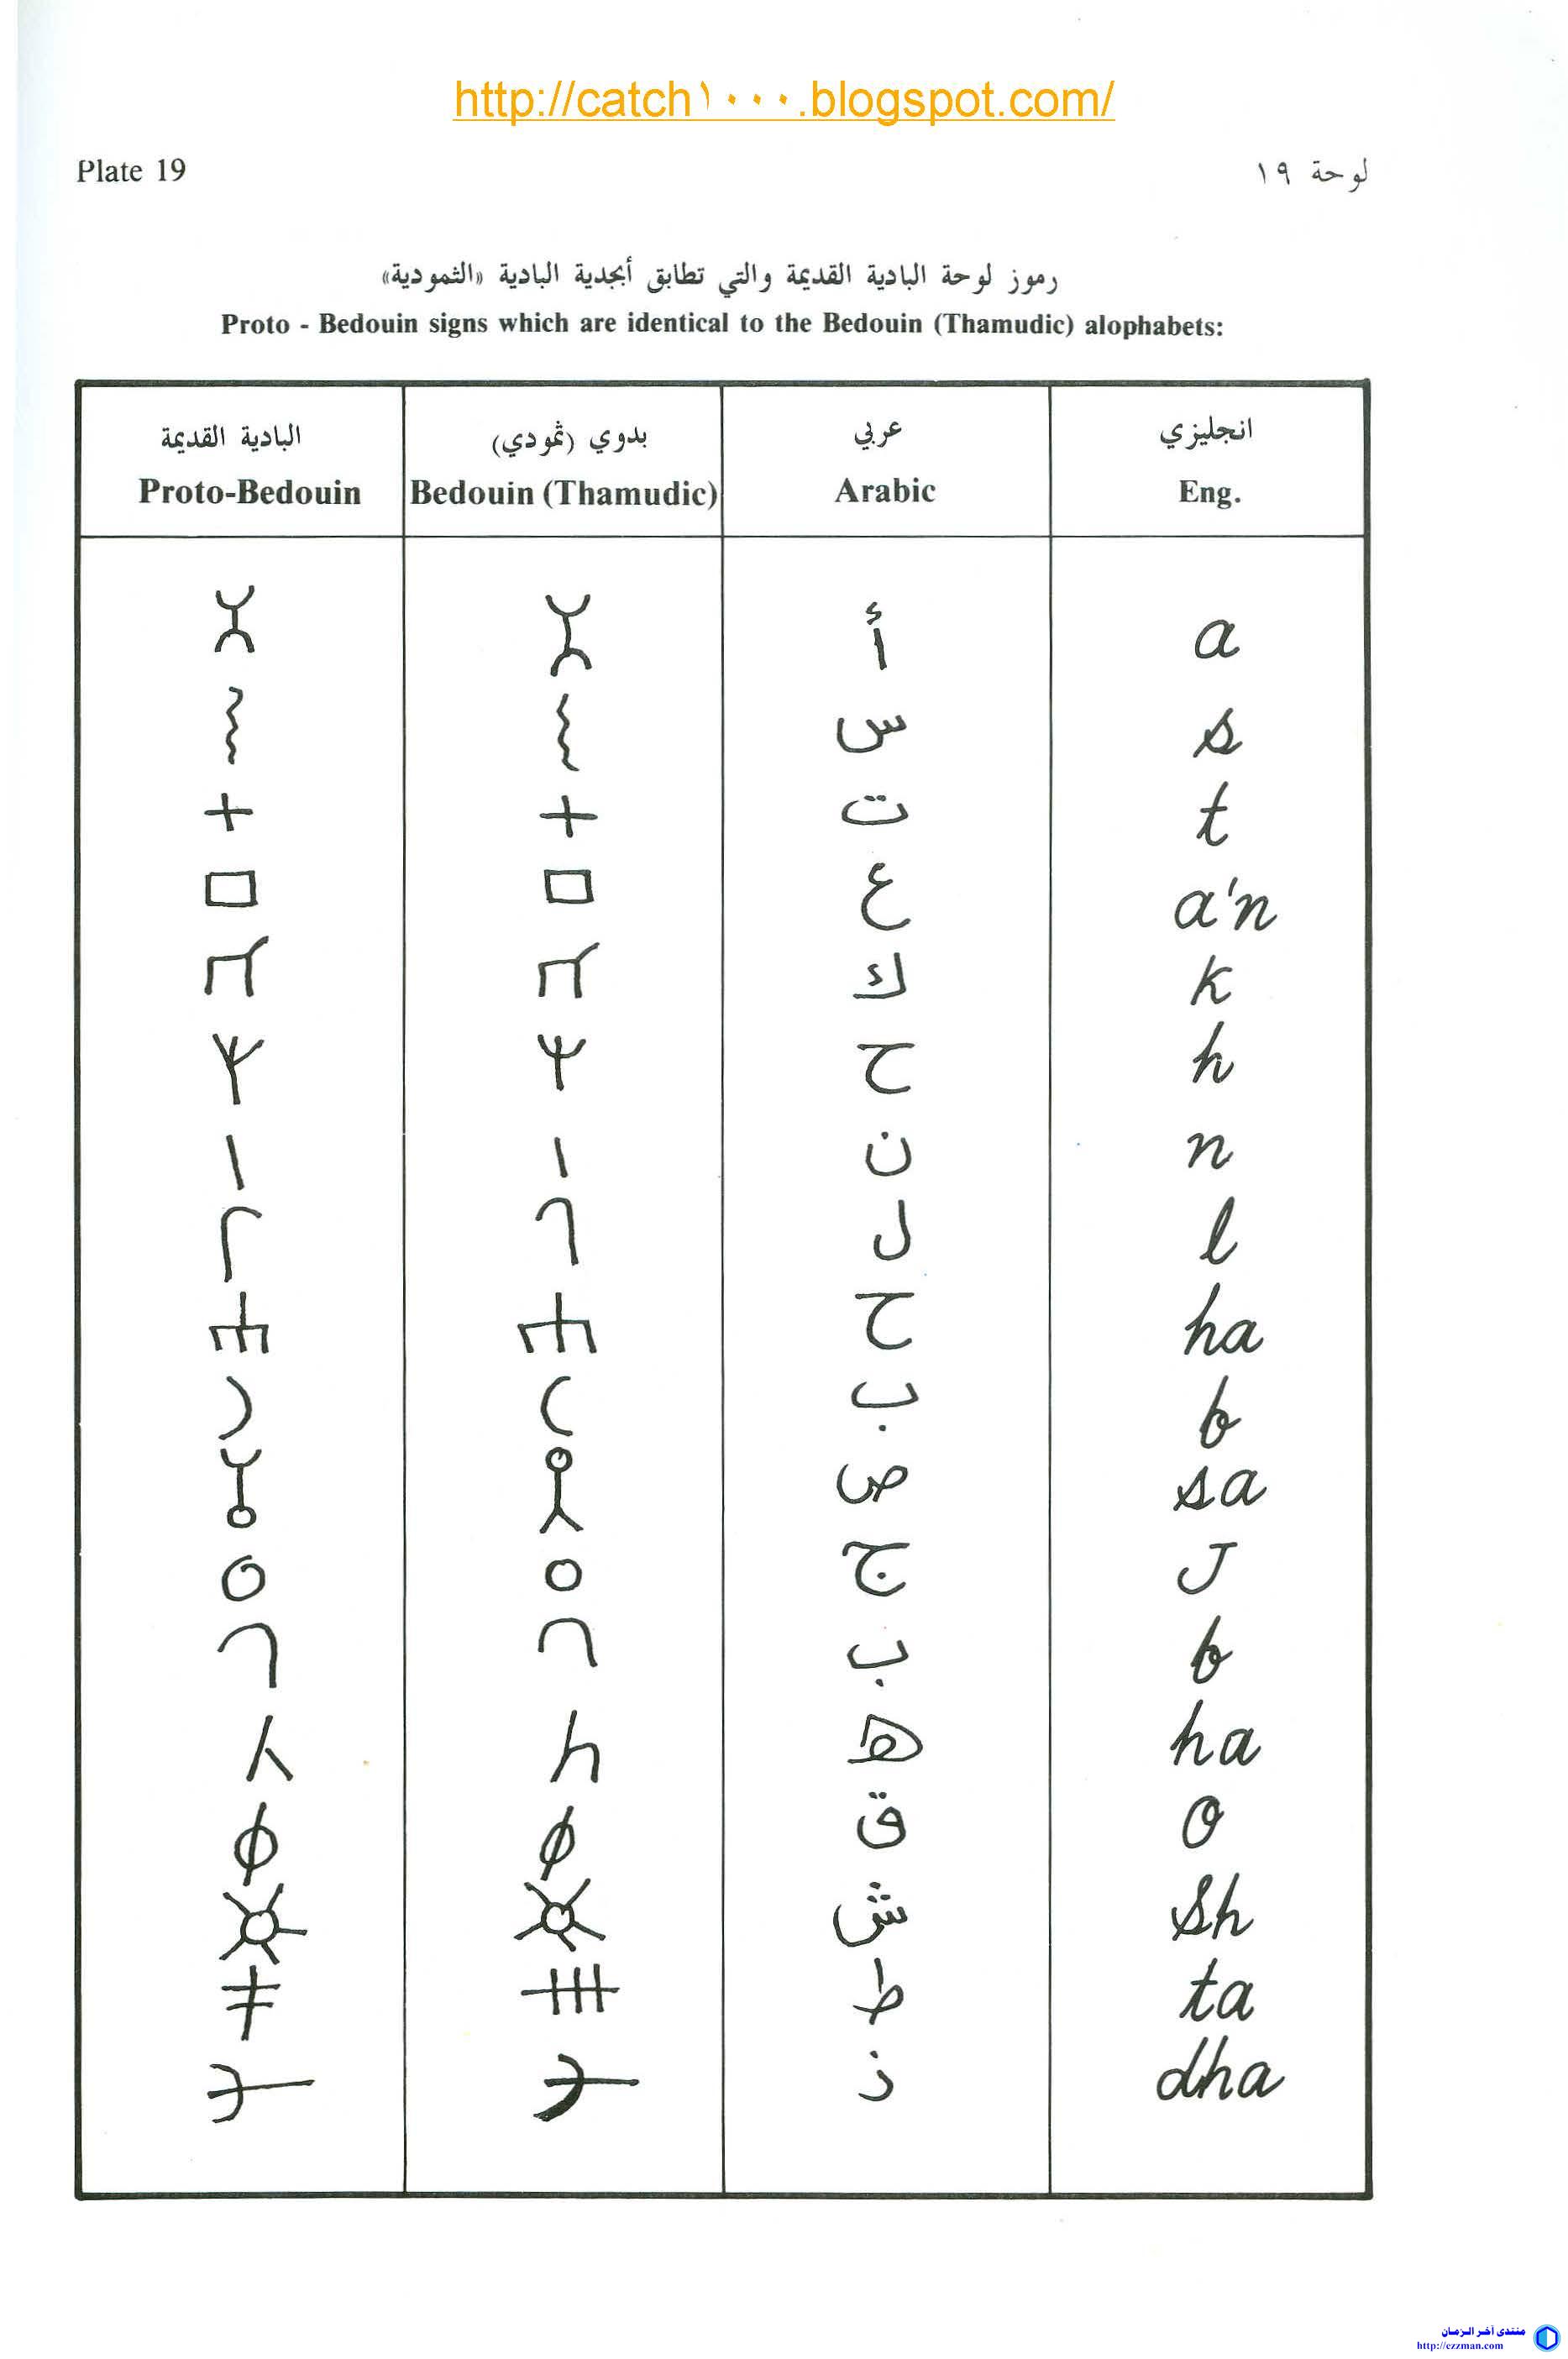 http://catch١٠٠٠.blogspot.com/
Plate 19
لوحة ١٩
رموز لوحة البادية القديمة والتي تطابق أبجدية البادية «الثمودية»
Proto - Bedouin signs which are identical to the Bedouin (Thamudic) alophabets:
البادية القديمة
بدوي (ثمودي)
عربي
انجليزي
Proto-Bedouin
Bedouin (Thamudic)
Arabic
Eng.
أ a
س s
ت t
ع a'n
ك k
ح h
ن n
ل l
ح ha
ب b
ص sa
ج J
ب b
ه ha
ق o
ش sh
ط ta
ذ dha
منتدى آخر الزمان
http://czzman.com